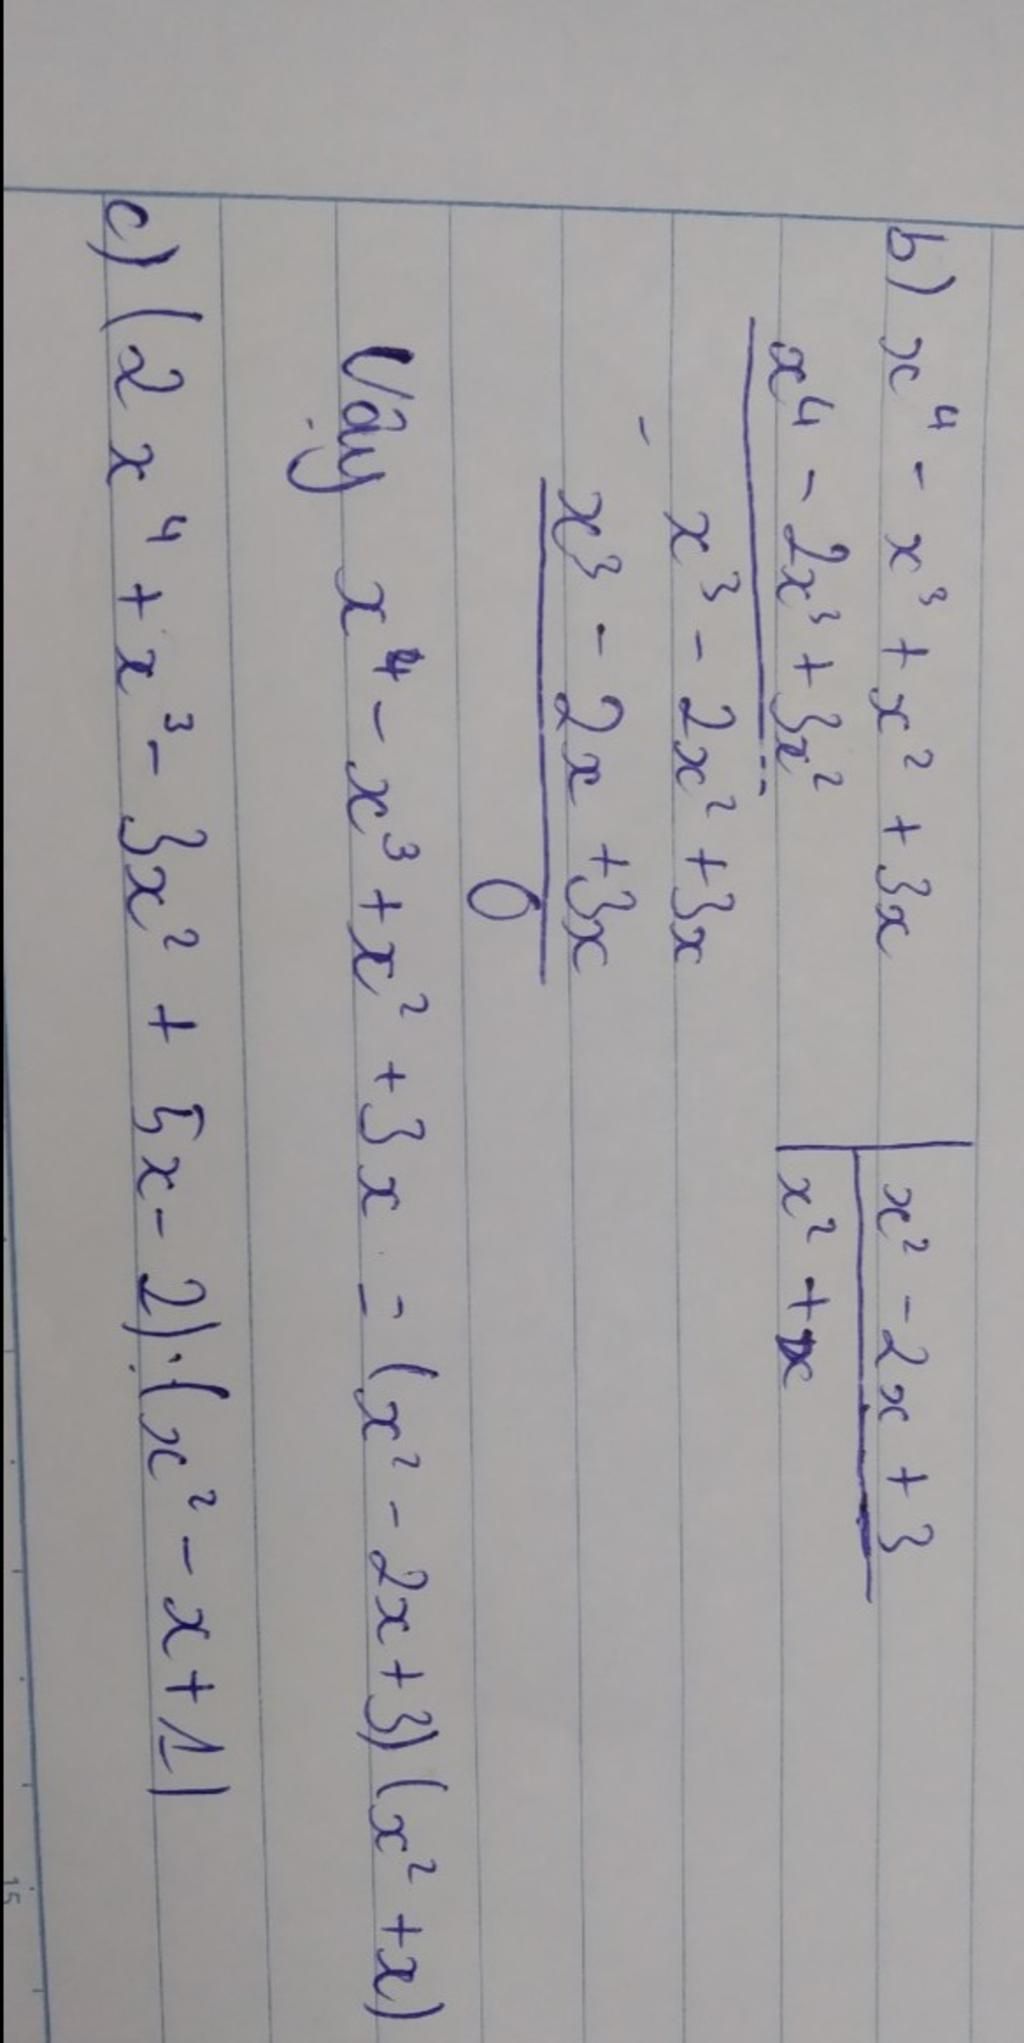 b) x⁴ - x³ + x² + 3x | x² - 2x + 3
x⁴ - 2x³ + 3x² | x² + x
x³ - 2x² + 3x
-
x³ - 2x + 3x
0
Vậy x⁴ - x³ + x² + 3x = (x² - 2x + 3)(x² + x)
c) (2x⁴ + x³ - 3x² + 5x - 2) : (x² - x + 1)
15